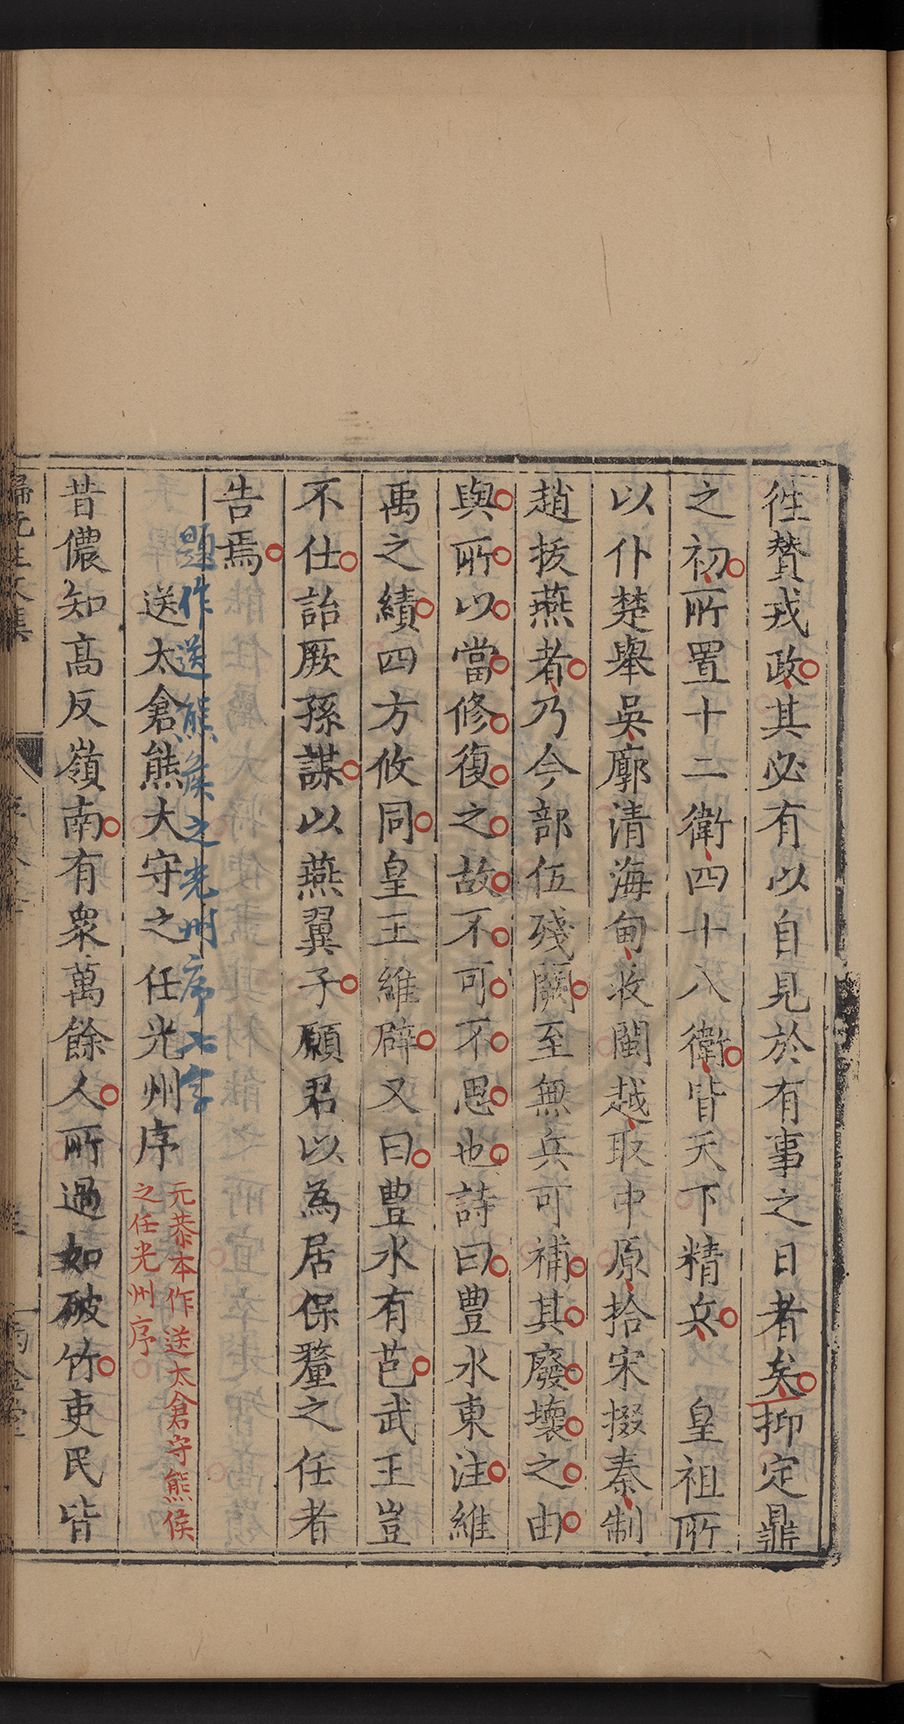 徃賛戎政其必有以自見於有事之日者矣抑定鼎
之初所置十二衛四十八衛皆天下精兵 皇祖所
以仆楚舉吳廓清海甸收閩越取中原拾宋掇秦制
趙拔燕者乃今部伍殘闕至無兵可補其廢壞之由
與所以當修復之故不可不思也詩曰豊水東注維
禹之績四方攸同皇王維辟又曰豊水有芑武王豈
不仕詒厥孫謀以燕翼子願君以為居保釐之任者
告焉
題作送熊矦之光州序七字
送太倉熊大守之任光州序
元恭本作送太倉守熊侯
之任光州序
昔儂知高反嶺南有衆萬餘人所過如破竹吏民皆